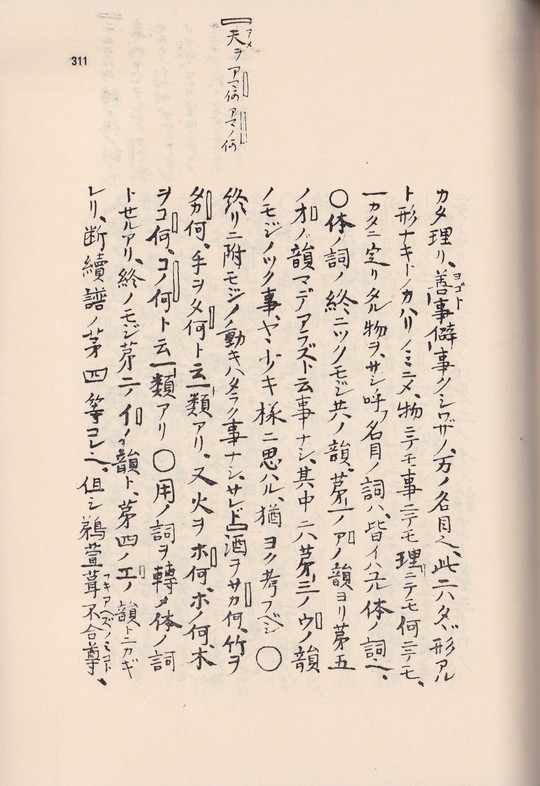 311
天ヲアマ何アマノ何
アメ
カタ理リ、善事僻事クシワザノ、方ノ名目ヘ、此二六タヾ形アル
ヨゴト
ト形ナキトノカハリノミニメ、物ニテモ事ニテモ理ニテモ何ニテモ、
一カタニ定リタル物ヲ、サシ呼フ名目ノ詞ハ、皆イハユル体ノ詞ヘ、
〇体ノ詞ノ終ニツクモジ共ノ韻、第一ノアノ韻ヨリ第五
ノオノ韻マデアラズト云事ナシ、其中ニハ第三ノウノ韻
ノモジノツク事、ヤヽ少キ様ニ思ハル、猶ヨク考フベシ〇
終リニ附モジノ動キハタラク事ナシ、サレド酒ヲサカ何、竹ヲ
タカ何、手ヲタ何ト云類アリ、又火ヲホ何、ホノ何、木
ヲコ何、コノ何ト云類アリ〇用ノ詞ヲ轉メ体ノ詞
トセルアリ、終ノモジ第二ノイノ韻ト、第四ノエノ韻トニカギ
レリ、断續譜ノ第四等コレヘ、但シ鵜萱葺不合尊、
フキアヘズノミコト